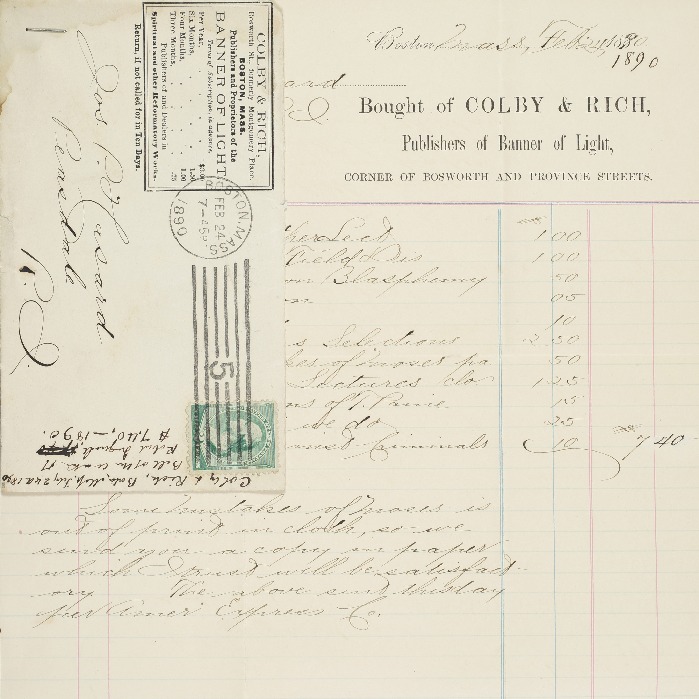 Boston, Mass, Feb 24 1880
1890
ard
Bought of COLBY & RICH,
Publishers of Banner of Light,
CORNER OF BOSWORTH AND PROVINCE STREETS.
1 00
1 00
on Blasphemy 50
05
10
s Selections 2 50
kes of Moses pa 50
Lectures clo 1.25
ns of T. Paine 15
we do 25
Criminals 10 7 40
Some mistakes of Moses is
out of print in cloth, so we
send you a copy in paper
which I trust will be satisfact-
ory The above sent this day
per Amer Express Co.
COLBY & RICH,
Bosworth St., formerly Montgomery Place,
BOSTON, MASS.
Publishers and Proprietors of the
BANNER OF LIGHT
Terms of Subscription in advance.
Per Year, $3.00
Six Months, 1.50
Four Months, 1.00
Three Months, .75
Publishers of and Dealers in
Spiritual and other Reformatory Works.
Return, if not called for in Ten Days.
BOSTON, MASS
FEB 24
7-45P
1890
5
Jos. P. Hazard
Peace Dale
R. I.
Colby & Rich, Boston
Bill of
$7.40, - 1890.